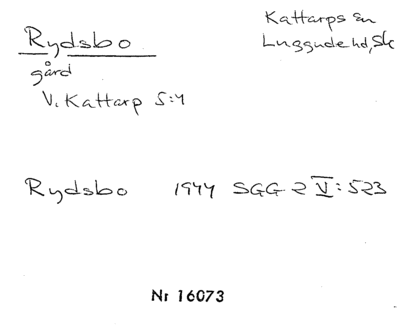 Rydsbo
Kattarps sn
Luggude hd, Sk
gård
V. Kattarp 5:4
Rydsbo 1944 SGG 2 V: 523
Nr 16073